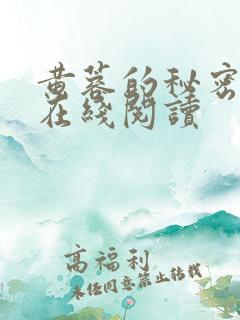 黄蓉的秘密
在线阅读
高福利
未经同意禁止转载